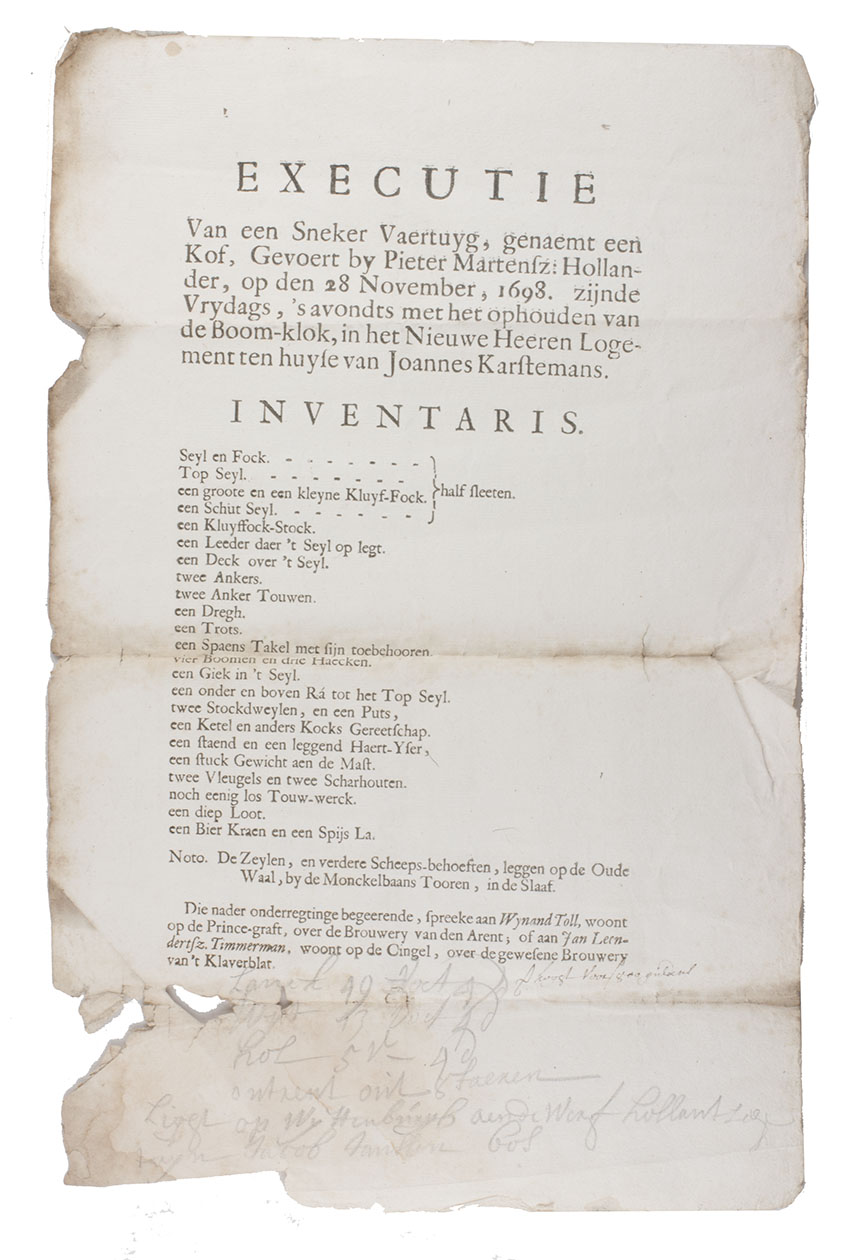 EXECUTIE
Van een Sneker Vaertuyg, genaemt een
Kof, Gevoert by Pieter Martenſz: Hollan-
der, op den 28 November, 1698. zijnde
Vrydags, 's avondts met het ophouden van
de Boom-klok, in het Nieuwe Heeren Loge-
ment ten huyſe van Joannes Karſtemans.
INVENTARIS.
Seyl en Fock. - - - - - - -
Top Seyl. - - - - - - -
een groote en een kleyne Kluyf-Fock. } half ſleeten.
een Schut Seyl. - - - - - -
een Kluyffock-Stock.
een Leeder daer 't Seyl op legt.
een Deck over 't Seyl.
twee Ankers.
twee Anker Touwen.
een Dregh.
een Trots.
een Spaens Takel met ſijn toebehooren.
vier Boomen en drie Haecken.
een Giek in 't Seyl.
een onder en boven Rá tot het Top Seyl.
twee Stockdweylen, en een Puts,
een Ketel en anders Kocks Gereetſchap.
een ſtaend en een leggend Haert-Yſer,
een ſtuck Gewicht aen de Maſt.
twee Vleugels en twee Scharhouten.
noch eenig los Touw-werck.
een diep Loot.
een Bier Kraen en een Spijs La.
Noto. De Zeylen, en verdere Scheeps-behoeften, leggen op de Oude
Waal, by de Monckelbaans Tooren, in de Slaaf.
Die nader onderregtinge begeerende, ſpreeke aan Wynand Toll, woont
op de Prince-graft, over de Brouwery van den Arent; of aan Jan Leen-
dertſz. Timmerman, woont op de Cingel, over de geweſene Brouwery
van 't Klaverblat.
Lanck 49
hol 5 v
ontrent out Jaeren
Ligt op Wittenburgh aen de Werf
Jacob Janssen bos